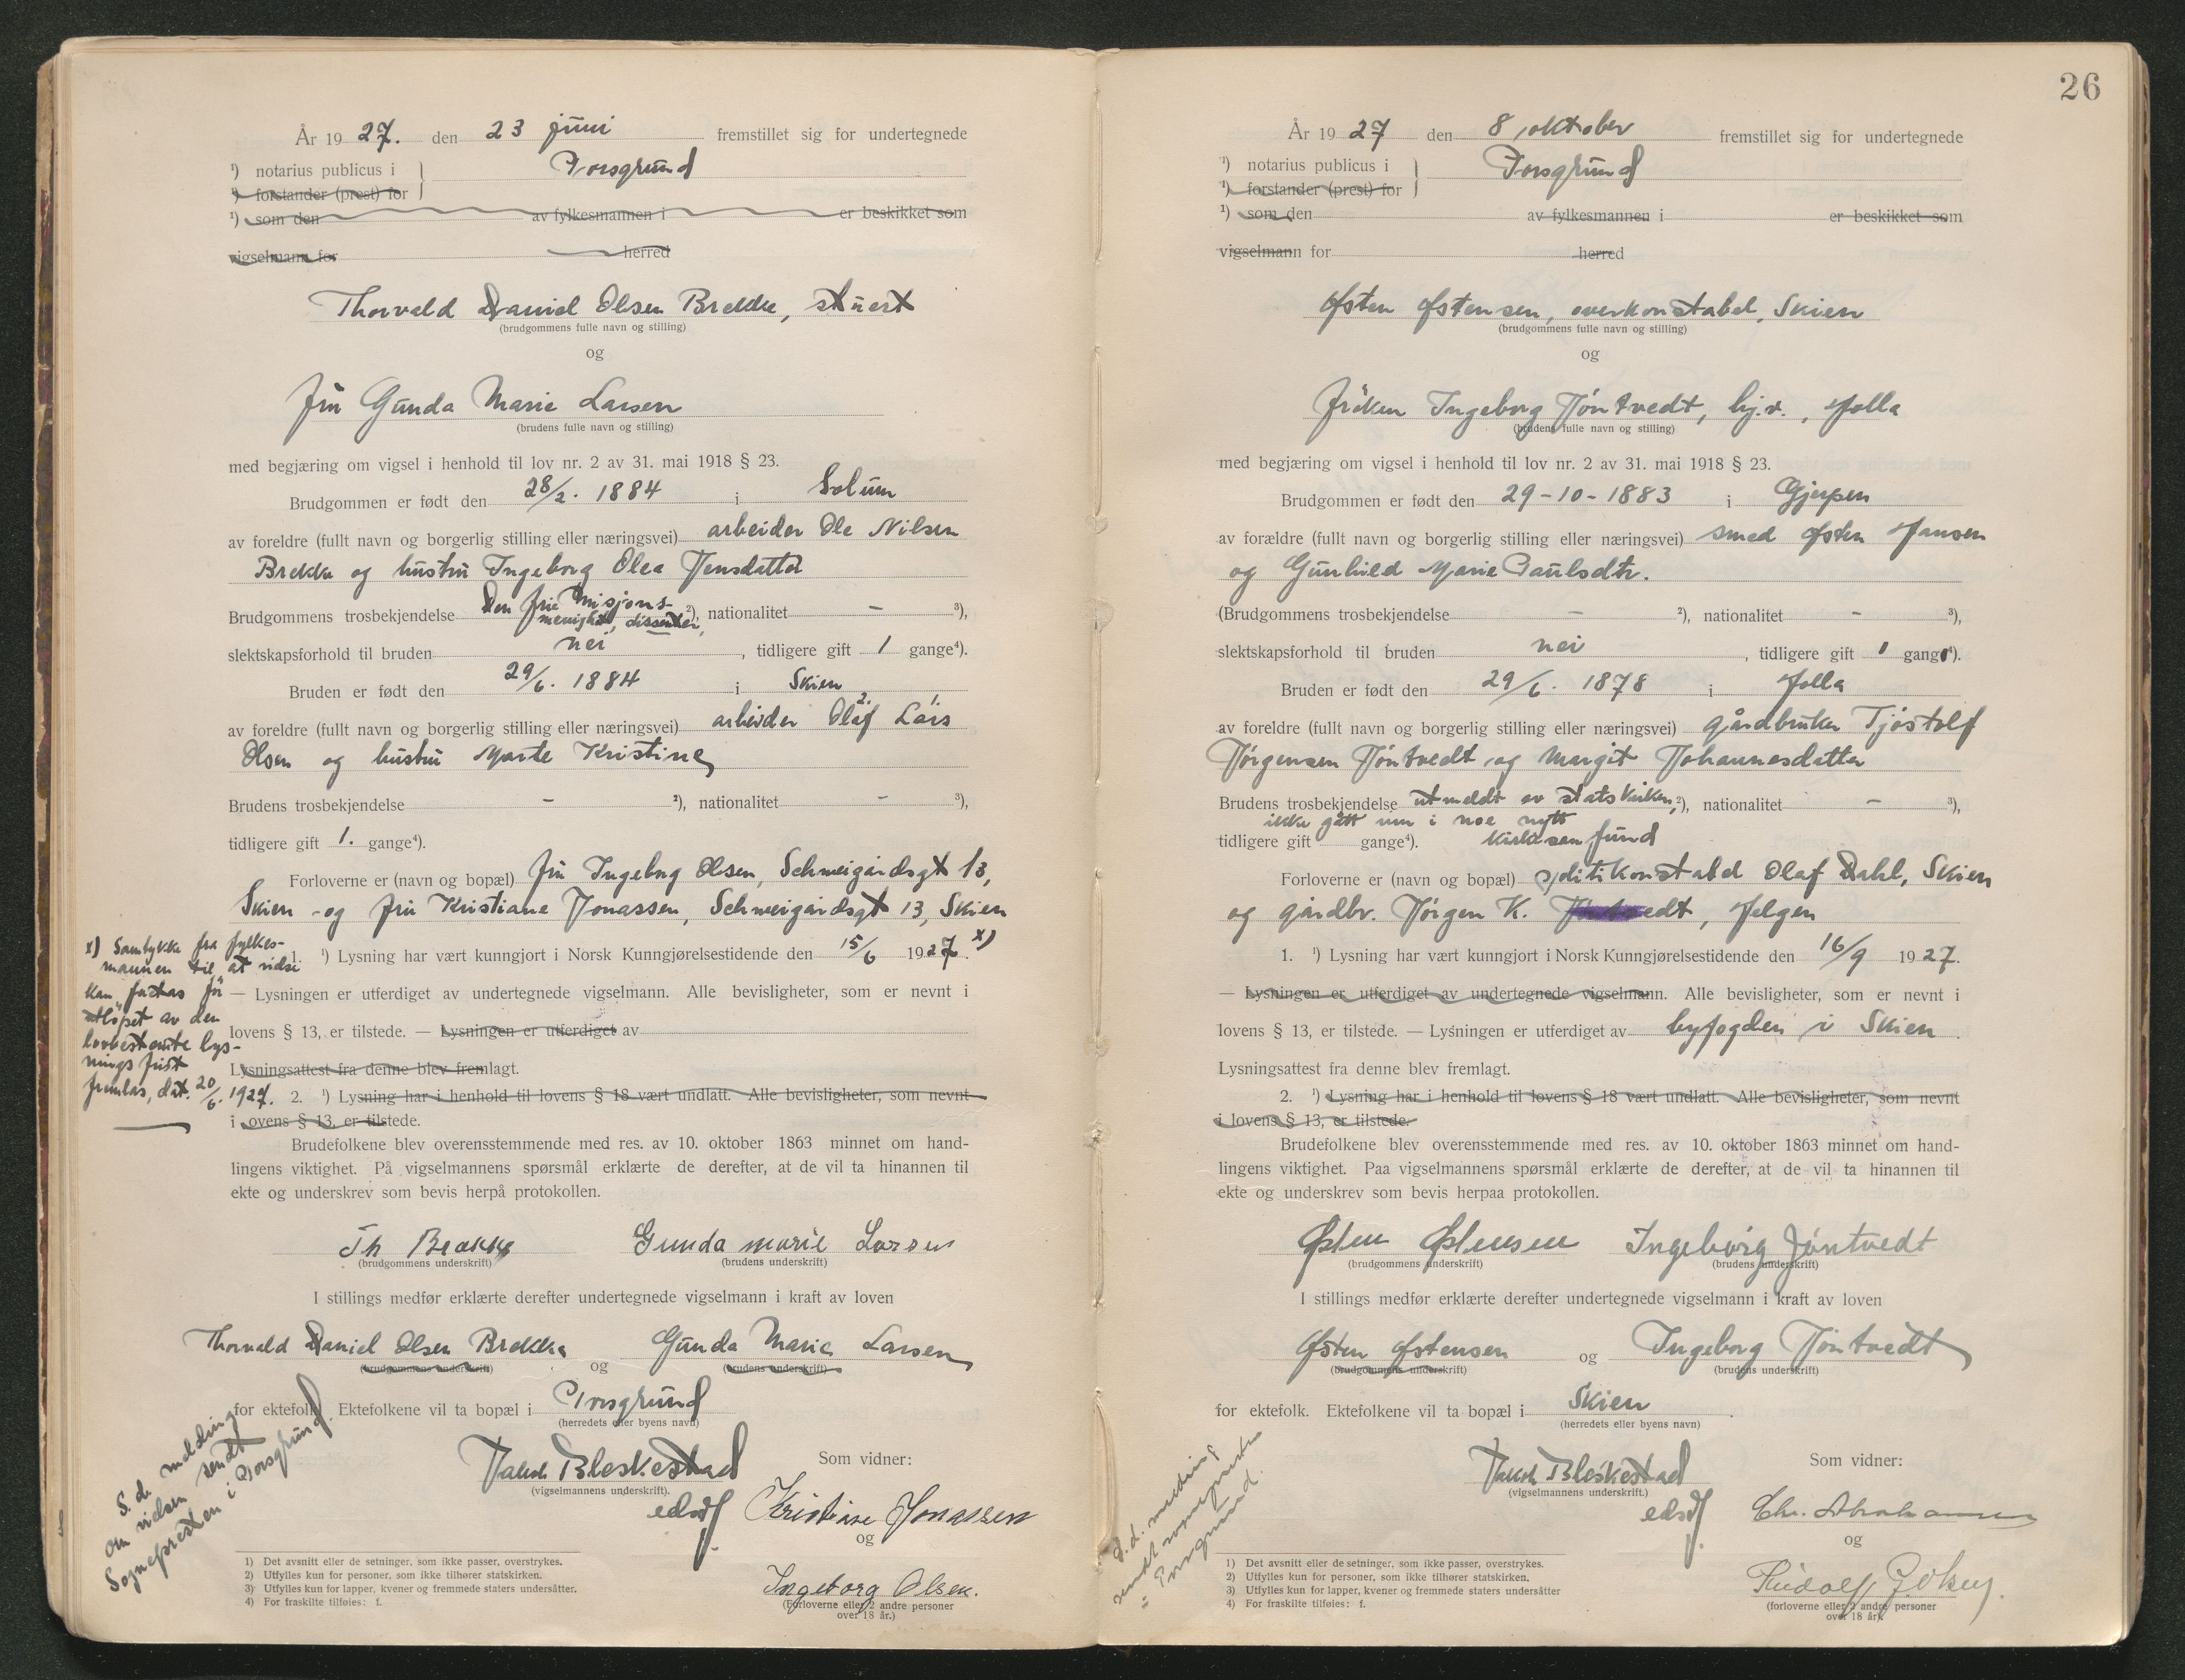 År 19 27. den 23 juni fremstillet sig for undertegnede
¹) notarius publicus i Porsgrund
¹) forstander (prest) for
¹) som den av fylkesmannen i er beskikket som
vigselmann for herred
Thorvald Daniel Olsen Brekke, stuert
(brudgommens fulle navn og stilling)
og
Fru Gunda Marie Larsen
(brudens fulle navn og stilling)
med begjæring om vigsel i henhold til lov nr. 2 av 31. mai 1918 § 23.
Brudgommen er født den 28/2. 1884 i Solum
av foreldre (fullt navn og borgerlig stilling eller næringsvei) arbeider Ole Nilsen
Brekke og hustru Ingeborg Olea Jensdatter
Brudgommens trosbekjendelse Den frie misjons- ²), nationalitet – ³),
menighet, dissenter,
slektskapsforhold til bruden nei, tidligere gift 1 gange⁴).
Bruden er født den 29/6. 1884 i Skien
av foreldre (fullt navn og borgerlig stilling eller næringsvei) arbeider Olaf 2. Lars 1.
Olsen og hustru Marte Kristine
Brudens trosbekjendelse – ²), nationalitet – ³),
tidligere gift 1. gange⁴).
Forloverne er (navn og bopæl) fru Ingeborg Olsen, Schweigårdsgt 13,
Skien og fru Kristiane Jonassen, Schweigårdsgt 13, Skien
1. ¹) Lysning har vært kunngjort i Norsk Kunngjørelsestidende den 15/6 1927. x)
— Lysningen er utferdiget av undertegnede vigselmann. Alle bevisligheter, som er nevnt i
lovens § 13, er tilstede. — Lysningen er utferdiget av
Lysningsattest fra denne blev fremlagt.
2. ¹) Lysning har i henhold til lovens § 18 vært undlatt. Alle bevisligheter, som nevnt
i lovens § 13, er tilstede.
x) Samtykke fra fylkes-
mannen til at vidse
kan foretas før
utløpet av den
lovbestemte lys-
nings frist
fremlas, dat. 20/6. 1927.
Brudefolkene blev overensstemmende med res. av 10. oktober 1863 minnet om hand-
lingens viktighet. På vigselmannens spørsmål erklærte de derefter, at de vil ta hinannen til
ekte og underskrev som bevis herpå protokollen.
Th Brekke Gunda Marie Larsen
(brudgommens underskrift) (brudens underskrift)
I stillings medfør erklærte derefter undertegnede vigselmann i kraft av loven
Thorvald Daniel Olsen Brekke og Gunda Marie Larsen
(brudgommens underskrift) (brudens underskrift)
for ektefolk. Ektefolkene vil ta bopæl i Porsgrund
(herredets eller byens navn)
S. d. melding
om vidsen sendt
Sognepresten i Porsgrund.
Jakob Bleskestad Som vidner:
(vigselmannens underskrift).
edsvf Kristiane Jonassen
og
Ingeborg Olsen.
(Forloverne eller 2 andre personer
over 18 år.)
1) Det avsnitt eller de setninger, som ikke passer, overstrykes.
2) Utfylles kun for personer, som ikke tilhører statskirken.
3) Utfylles kun for lapper, kvener og fremmede staters undersåtter.
4) For fraskilte tilføies: f.
26
År 19 27 den 8 oktober fremstillet sig for undertegnede
¹) notarius publicus i Porsgrund
¹) forstander (prest) for
¹) som den av fylkesmannen i er beskikket som
vigselmann for herred
Østen Østensen, overkonstabel, Skien
(brudgommens fulle navn og stilling)
og
Frøken Ingeborg Jøntvedt, hj.v., Holla
(brudens fulle navn og stilling)
med begjæring om vigsel i henhold til lov nr. 2 av 31. mai 1918 § 23.
Brudgommen er født den 29-10-1883 i Gjerpen
av forældre (fullt navn og borgerlig stilling eller næringsvei) smed Østen Hansen
og Gunhild Marie Paulsdtr.
(Brudgommens trosbekjendelse – ²), nationalitet – ³),
slektskapsforhold til bruden nei, tidligere gift 1 gange⁴).
Bruden er født den 29/6. 1878 i Holla
av foreldre (fullt navn og borgerlig stilling eller næringsvei) gårdbruker Tjøstolf
Jørgensen Jøntvedt og Margit Johannesdatter
Brudens trosbekjendelse utmeldt av statskirken, ²), nationalitet – ³),
ikke gått inn i noe nytt
tidligere gift gange⁴). kirkesamfund
Forloverne er (navn og bopæl) politikonstabel Olaf Dahl, Skien
og gårdbr. Jørgen K. Jøntvedt, Helgen
1. ¹) Lysning har vært kunngjort i Norsk Kunngjørelsestidende den 16/9 1927.
— Lysningen er utferdiget av undertegnede vigselmann. Alle bevisligheter, som er nevnt i
lovens § 13, er tilstede. — Lysningen er utferdiget av byfogden i Skien.
Lysningsattest fra denne blev fremlagt.
2. ¹) Lysning har i henhold til lovens § 18 vært undlatt. Alle bevisligheter, som nevnt
i lovens § 13, er tilstede.
Brudefolkene blev overensstemmende med res. av 10. oktober 1863 minnet om hand-
lingens viktighet. Paa vigselmannens spørsmål erklærte de derefter, at de vil ta hinannen til
ekte og underskrev som bevis herpaa protokollen.
Østen Østensen Ingeborg Jøntvedt
(brudgommens underskrift) (brudens underskrift)
I stillings medfør erklærte derefter undertegnede vigselmann i kraft av loven
Østen Østensen og Ingeborg Jøntvedt
(brudgommens underskrift) (brudens underskrift)
for ektefolk. Ektefolkene vil ta bopæl i Skien.
(herredets eller byens navn)
S. d. melding
sendt sognepresten
i Porsgrund.
Jakob Bleskestad Som vidner:
(vigselmannens underskrift.)
edsvf Chr. Abrahamsen
og
Rudolf
(forloverne eller 2 andre personer
over 18 år).
1) Det avsnitt eller de setninger, som ikke passer, overstrykes.
2) Utfylles kun for personer, som ikke tilhører statskirken.
3) Utfylles kun for lapper, kvener og fremmede staters undersåtter
4) For fraskilte tilføies: f.